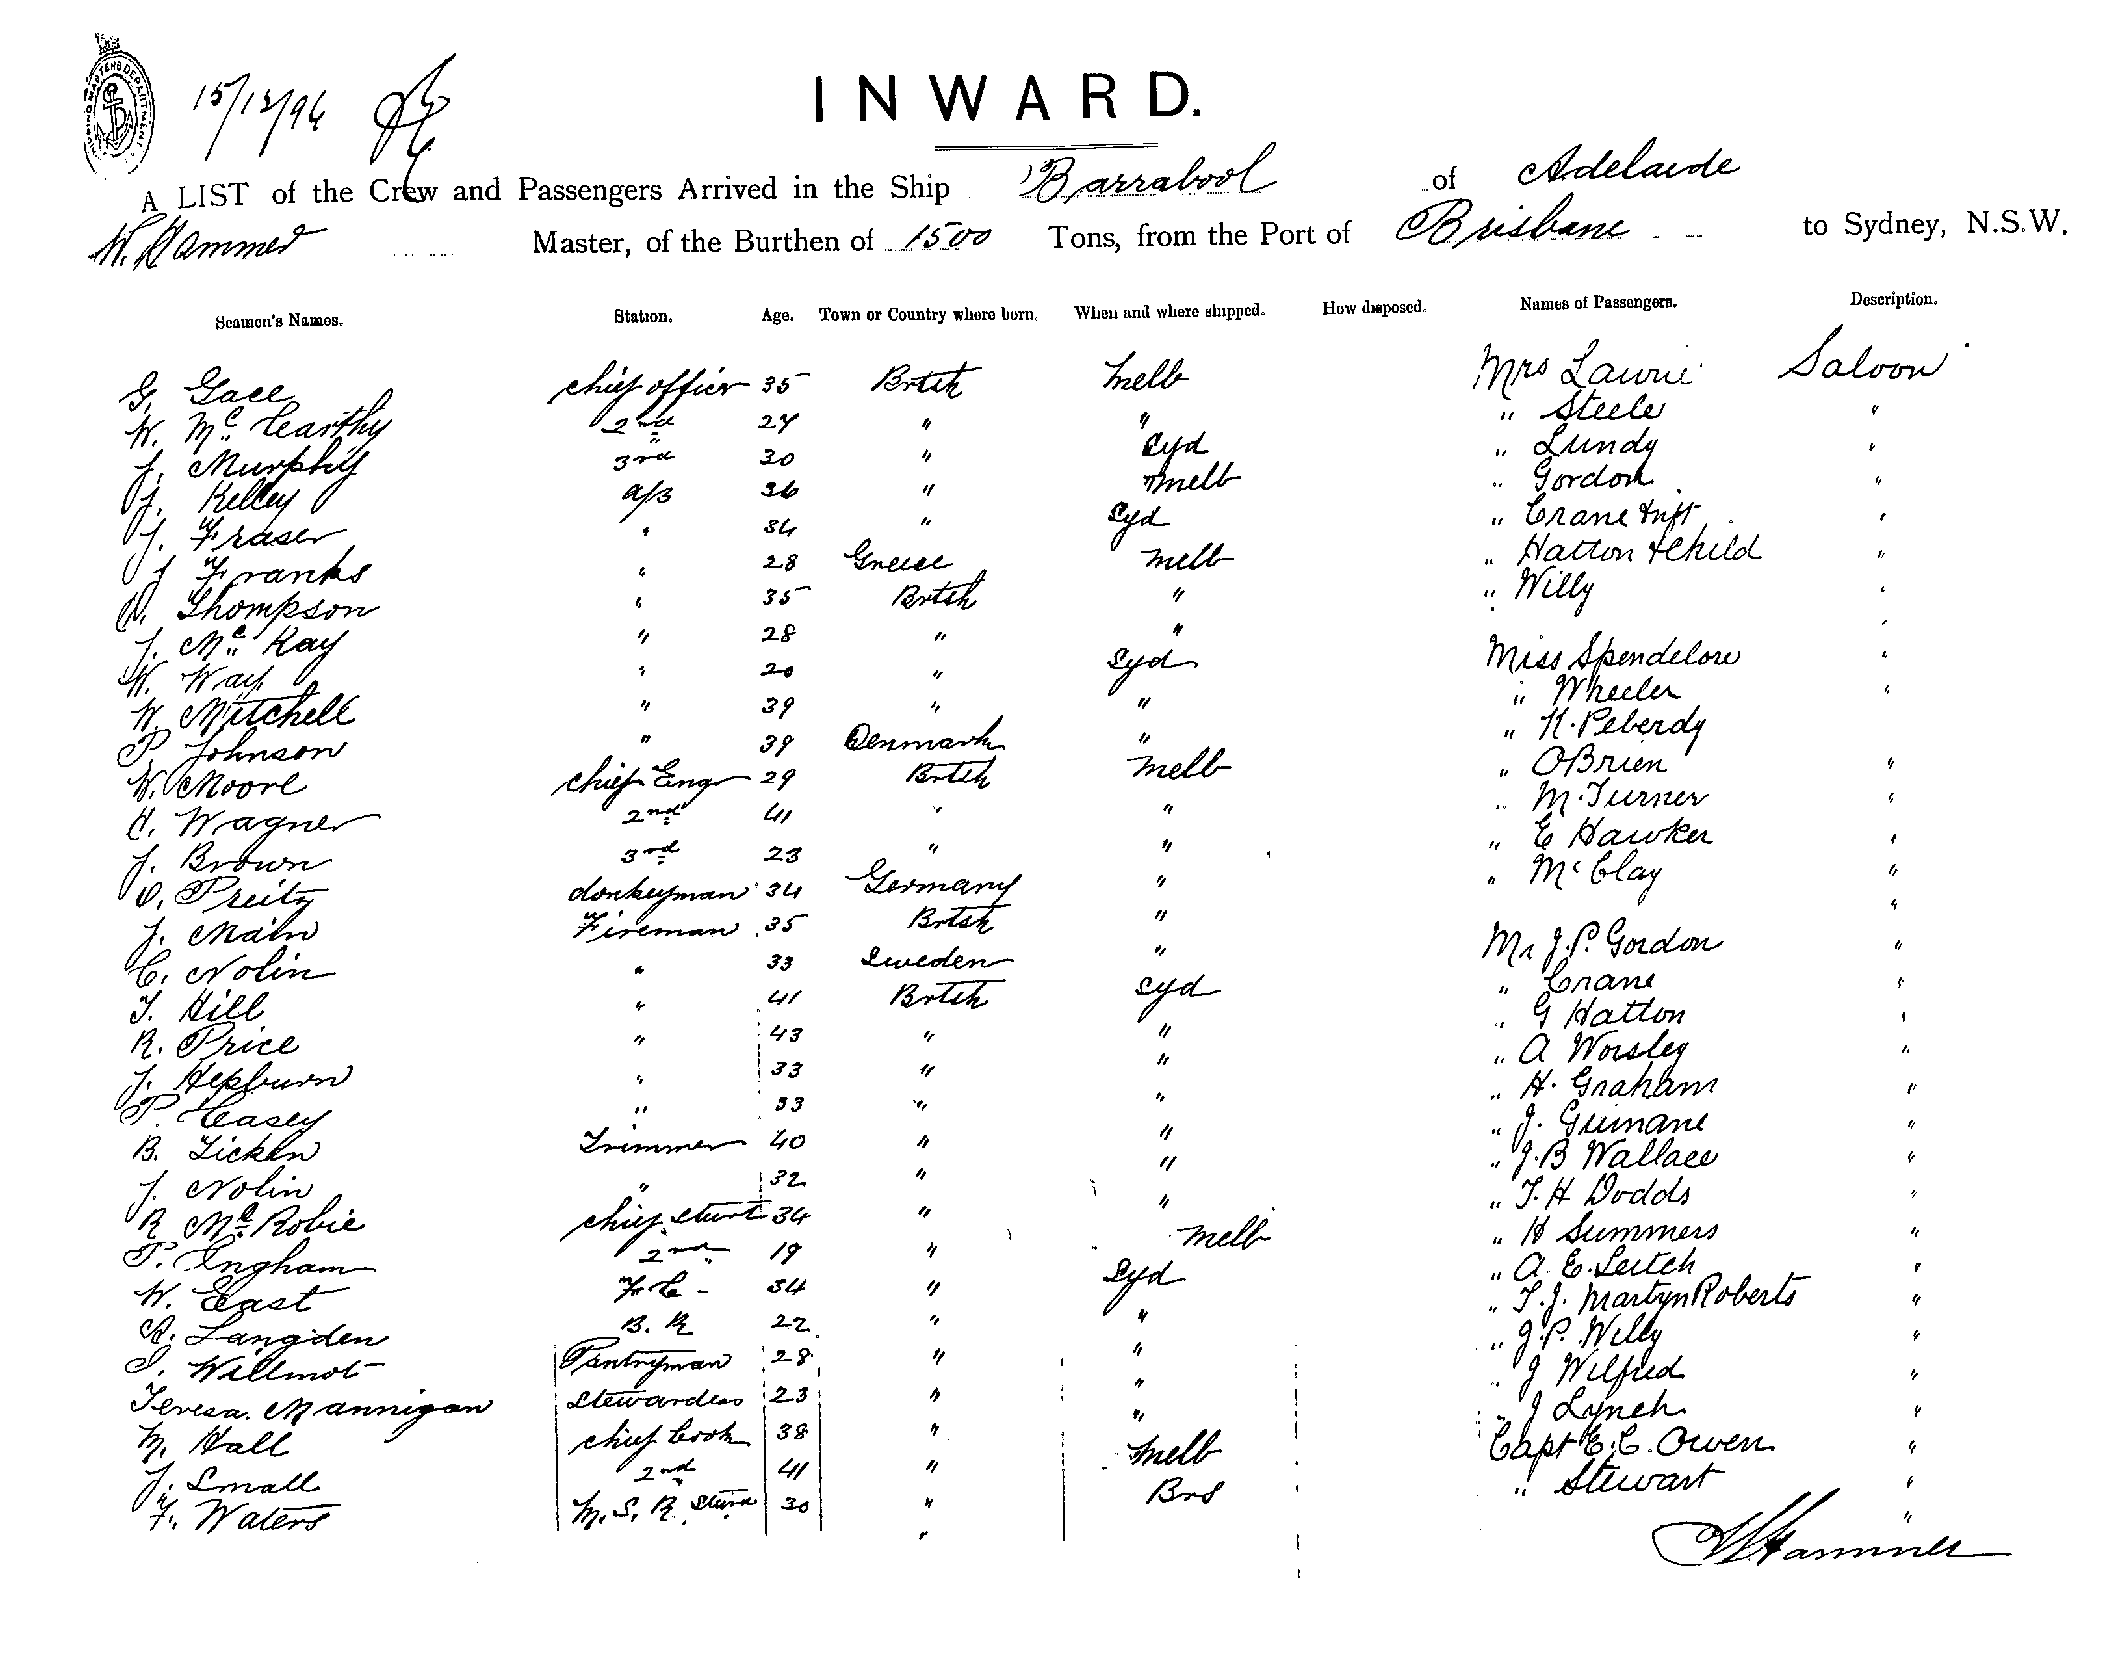 15/12/96
INWARD.
A LIST of the Crew and Passengers Arrived in the Ship Barrabool of Adelaide
W. Hammer Master, of the Burthen of 1500 Tons, from the Port of Brisbane to Sydney, N.S.W.
Seamen's Names. Station. Age. Town or Country where born. When and where shipped. How disposed. Names of Passengers. Description.
G. Gace chief officer 35 Brtsh Melb Mrs Lawrie Saloon
W. Mc. Carthy 2nd " 27 " " " Steele "
J. Murphy 3rd 30 " Syd " Lundy "
J. Kelley a/s 36 " Melb " Gordon "
J. Fraser " 34 " Syd " Crane & Inft "
J Franks " 28 Greece Melb " Hatton & Child "
Thompson " 35 Brtsh " " Willy "
J. Mc. Kay " 28 " " "
W. Way " 20 " Syd Miss Spendelow "
W. Mitchell " 39 " " " Wheeler "
P. Johnson " 39 Denmark " " K. Peberdy
W. Moore chief Eng 29 Brtsh Melb " OBrien "
H. Wagner 2nd 41 " " " M. Turner "
J. Brown 3rd 23 " " " E Hawker "
O. Preitz donkeyman 34 Germany " " Mc Clay "
J. Main Fireman 35 Brtsh " "
C. Nolin " 33 Sweden " Mr J. P. Gordon "
T. Hill " 41 Brtsh Syd " Crane "
R. Price " 43 " " " G Hatton "
J. Hepburn " 33 " " " A Worsley "
P. Casey " 33 " " " H. Graham "
B. Ticken Trimmer 40 " " " J. Guinane "
J. Nolin " 32 " " " J. B Wallace "
R Mc Robie chief sturt 34 " " " T. H Dodds "
P. Ingham 2nd " 19 " Melb " H Summers "
W. East F. C - 34 " Syd " A. E. Leitch "
A. Langden B. R 22 " " " T. J. Martyn Roberts "
S. Willmot Pantryman 28 " " " J. P. Willy "
Teresa. Mannigan Stewardess 23 " " " J Wilfred "
M. Hall chief Cook 38 " " " J Lynch "
J. Small 2nd " 41 " Melb Capt E. C. Owen "
F. Waters M. S. R. Sturd 30 " Brs " Stewart "
" "
W Hammer